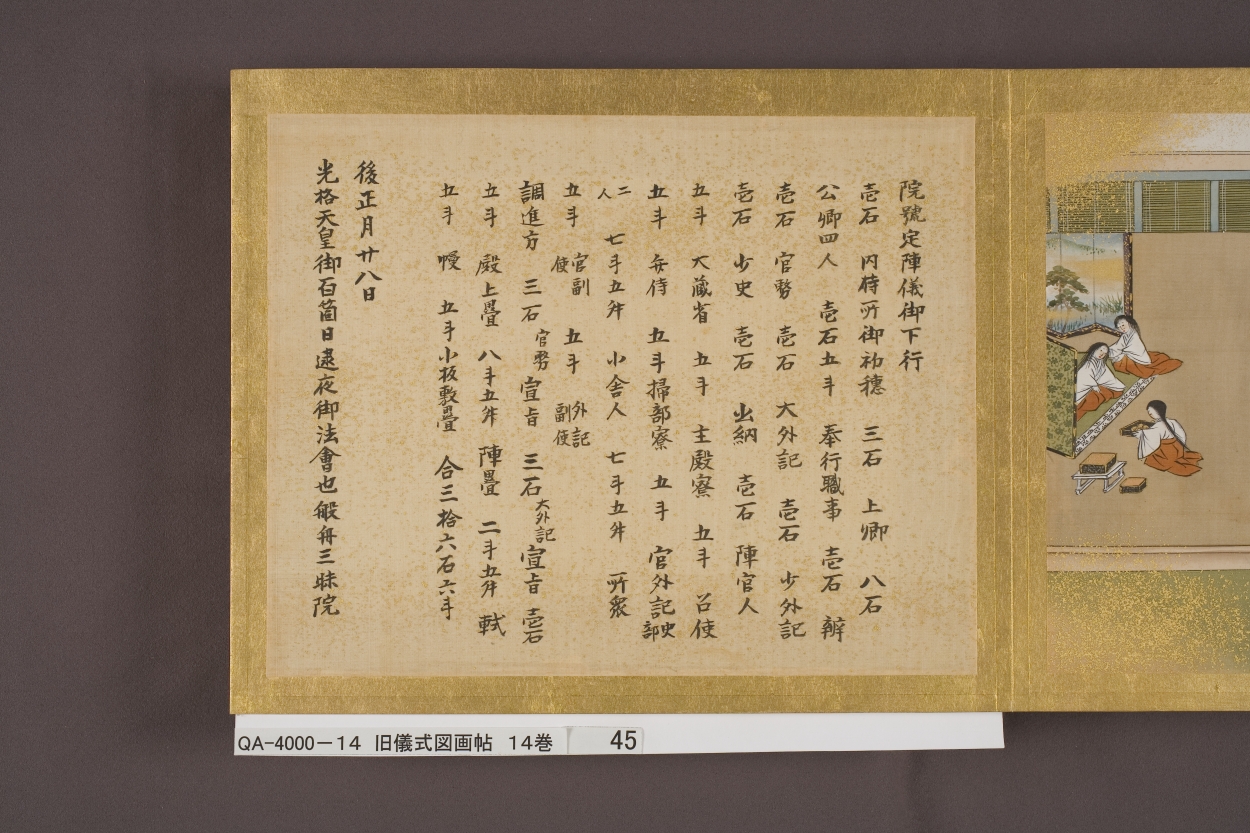 院號定陣儀御下行
壱石 内侍所御初穂 三石 上卿 八石
公卿四人 壱石五斗 奉行職事 壱石 辨
壱石 官務 壱石 大外記 壱石 少外記
壱石 少史 壱石 出納 壱石 陣官人
五斗 大蔵省 五斗 主殿寮 五斗 召使
五斗 弁侍 五斗 掃部寮 五斗 官外記史部
二人 七斗五舛 小舎人 七斗五舛 所衆
五斗 官副使 五斗 外記副使
調進方 三石 官務宣旨 三石 大外記宣旨 壱石
五斗 殿上畳 八斗五舛 陣畳 二斗五舛 軾
五斗 幔 五斗 小板敷畳 合三拾六石六斗
後正月廿八日
光格天皇御百箇日逮夜御法會也般舟三昧院
QA-4000-14 旧儀式図画帖 14巻 45